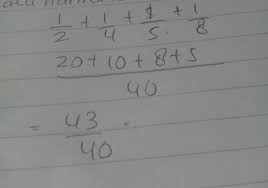 1/2 + 1/4 + 1/5. + 1/8
20+10+8+5
40
= 43/40